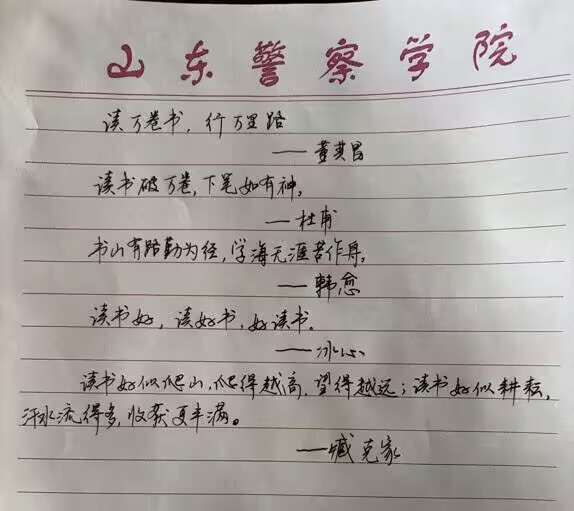 山东警察学院
读万卷书，行万里路
——董其昌
读书破万卷，下笔如有神。
——杜甫
书山有路勤为径，学海无涯苦作舟。
——韩愈
读书好，读好书，好读书。
——冰心
读书好似爬山，爬得越高，望得越远；读书好似耕耘，
汗水流得多，收获更丰满。
——臧克家